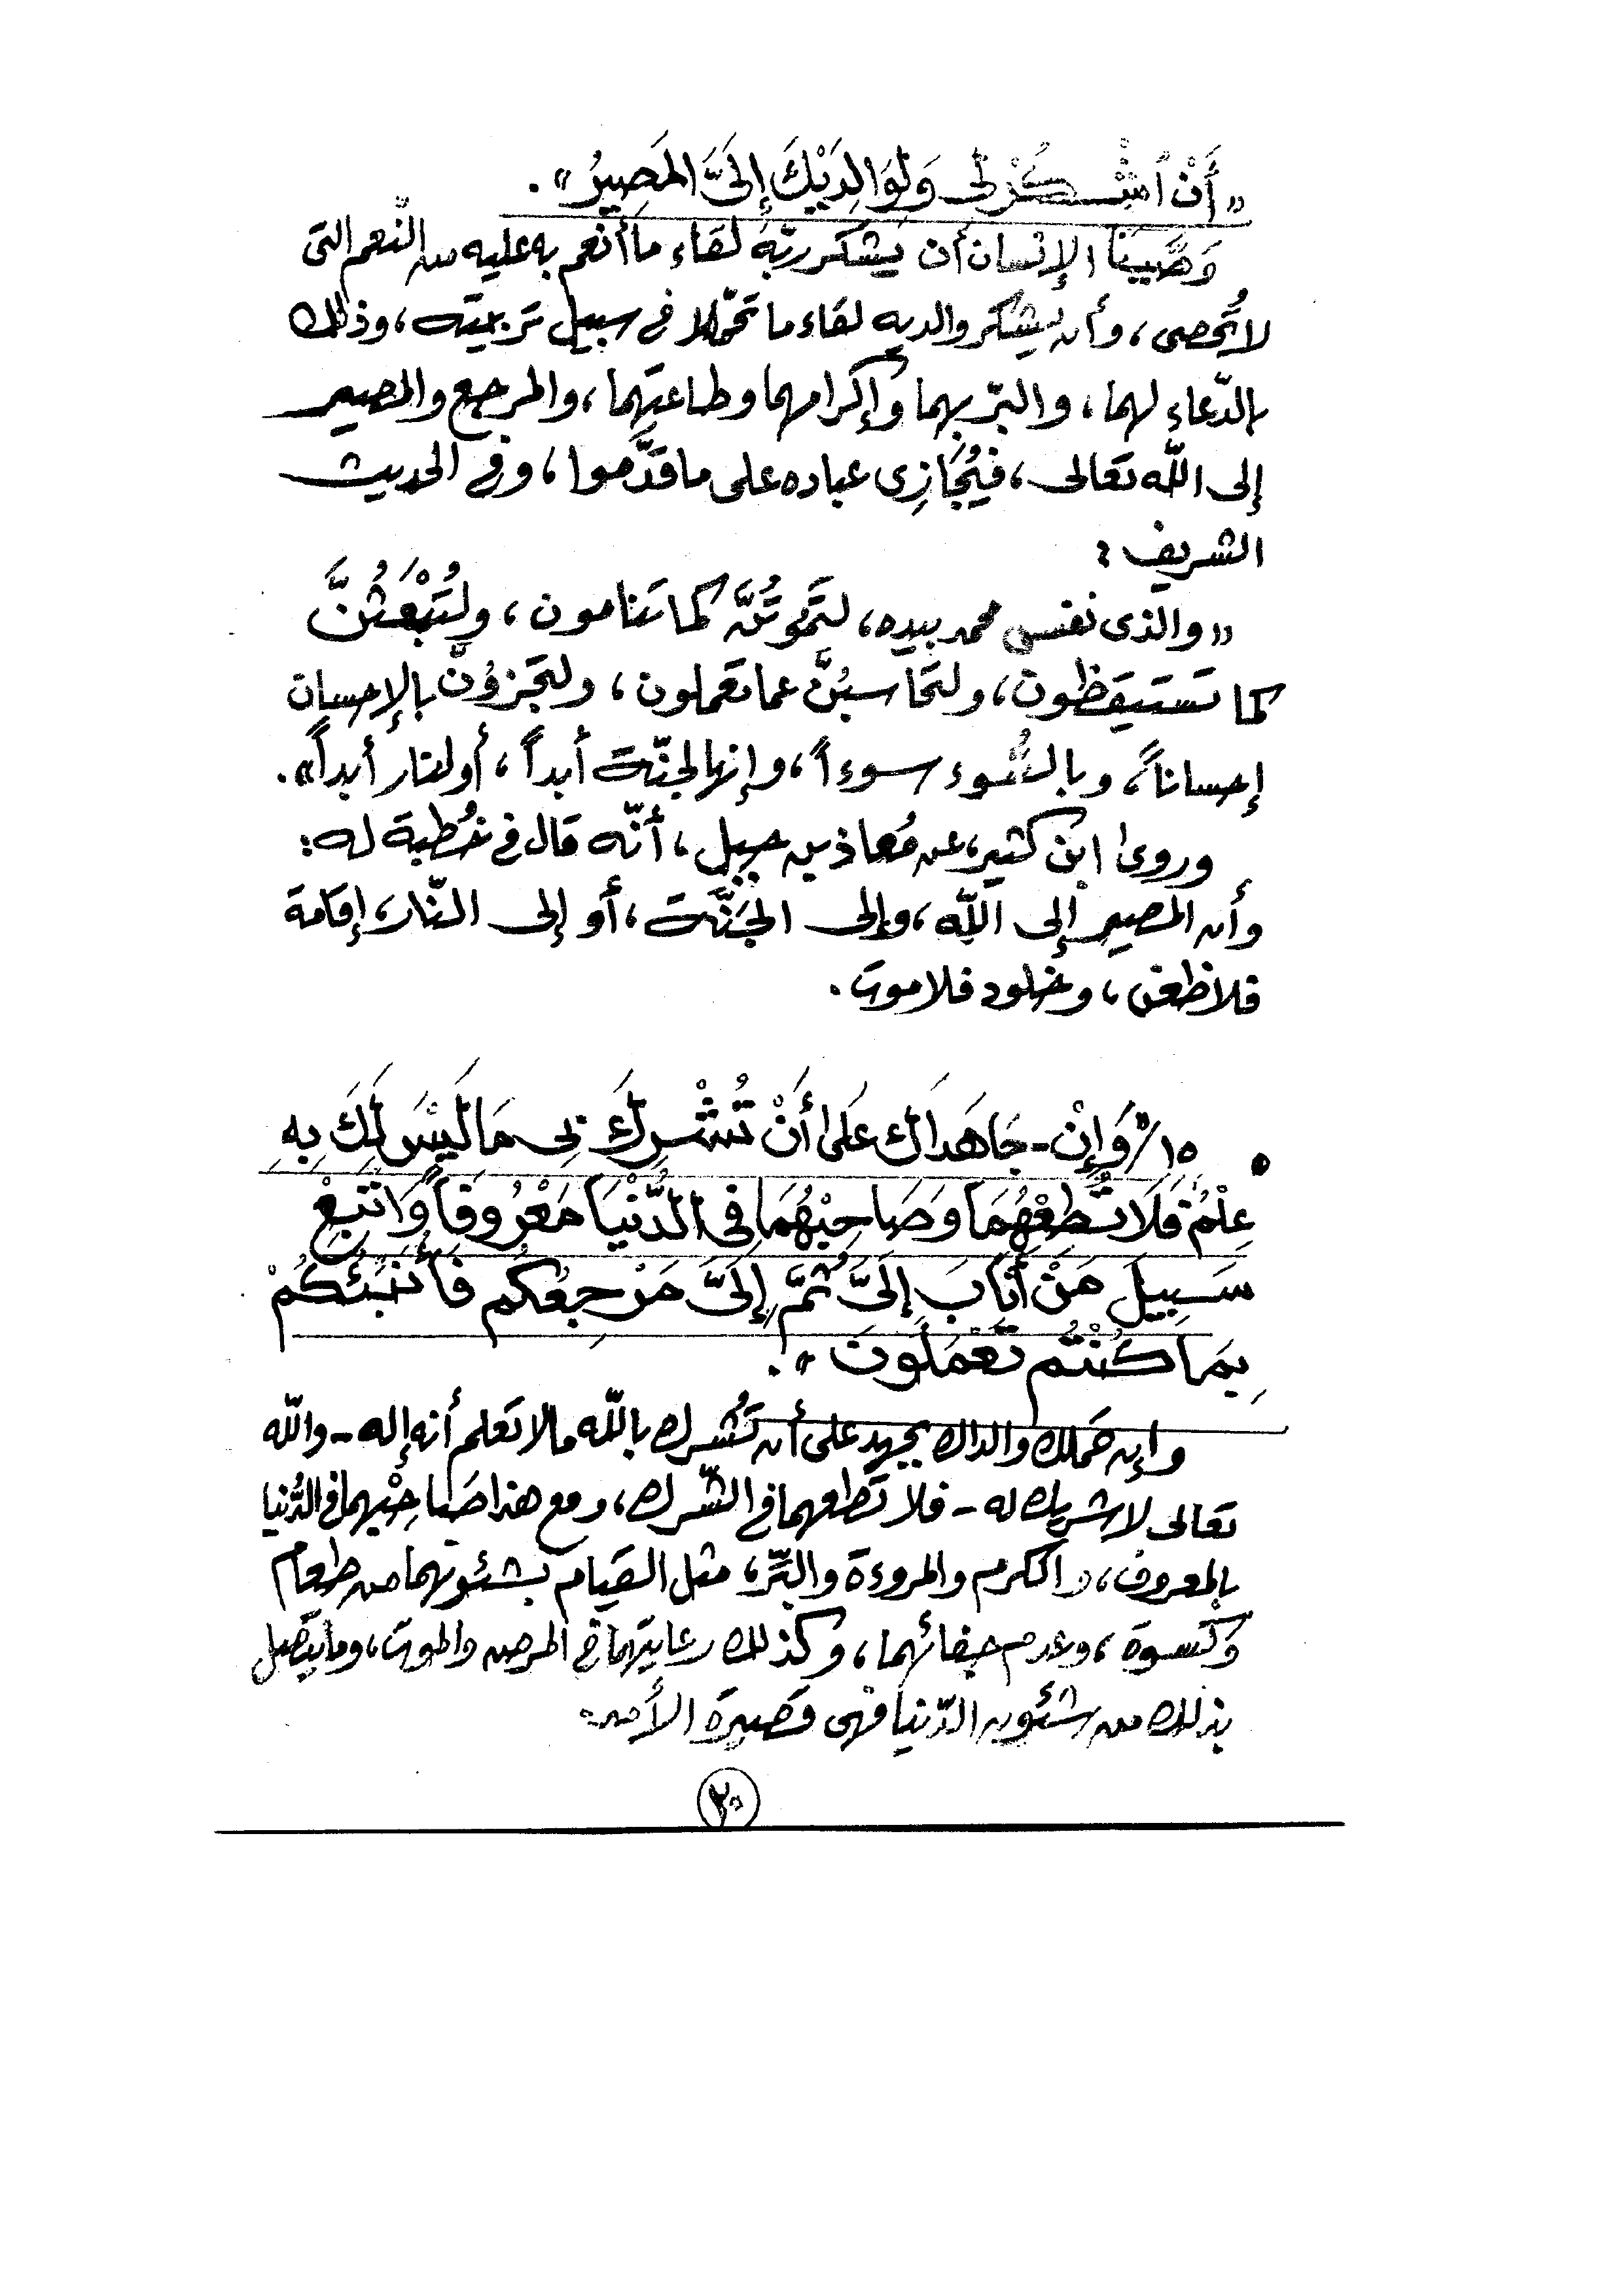 «أَنْ اُشْكُرْ لِى وَلِوَالِدَيْكَ إِلَىَّ المَصِيرُ».
وَصَّيْنَا الإِنْسان أن يَشكر ربّهُ لقاء ما أنعم به عليه من النّعم التى
لا تُحصى، وأن يشكر والديه لقاء ما تحمّلا فى سبيل تربيته، وذلك
بالدّعاء لهما، والبرّ بهما وإكرامهما وطاعتهما، والمرجع والمصير
إلى اللّه تعالى، فيُجَازِى عباده على ما قدَّموا، وفى الحديث
الشريف:
«والذى نفسى محمد بيده، لتَمُوتُنَّ كما تنامون، ولتُبْعَثُنَّ
كما تستيقظون، ولتحاسبُنَّ عما تعملون، ولتجزوُنَّ بالإحسان
إحساناً، وبالسُّوء سوءاً، وإنها لجنّة أبداً، أو لنار أبداً».
وروى ابن كثير، عن مُعاذ بن جبل، أنّه قال فى خُطبة له:
وأن المصير إلى اللّه، وإلى الجَنَّة، أو إلى النّار، إقامة
فلا ظعن، وخلود فلا موت.
• ١٥/«وَإِنْ - جَاهَدَاكَ عَلَى أَنْ تُشْرِكَ بِى مَا لَيْسَ لَكَ بِهِ
عِلْمٌ فَلَا تُطِعْهُمَا وَصَاحِبْهُمَا فِى الدُّنْيَا مَعْرُوفَاً وَاتَّبِعْ
سَبِيلَ مَنْ أَنَابَ إِلَىَّ ثُمَّ إِلَىَّ مَرْجِعُكُم فَأُنَبِّئُكُمْ
بِمَا كُنْتُم تَعْمَلُونَ».
وإن حَملك والداك بجهد على أن تُشرك باللّه ما لا تعلم أنه إله - واللّه
تعالى لا شريك له - فلا تطعهما فى الشّرك، ومع هذا صَاحِبْهما فى الدُّنيا
بالمعروف، والكرم والمروءة والبِّر، مثل القيام بشئونهما من طعام
وكسوة، وعدم جفائهما، وكذلك رعايتهما فى المرض والموت، وما يتّصل
بذلك من شئون الدّنيا فهى قصيرة الأمد.
٢٠